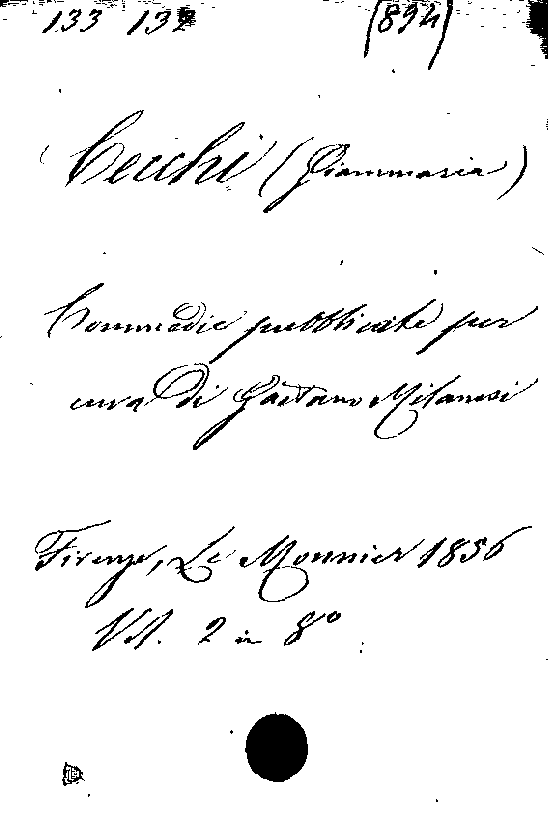 133 132 (894)
Cecchi (Giammaria)
Commedie pubblicate per
cura di Gaetano Milanesi
Firenze, Le Monnier 1856
Vol. 2 in 8º